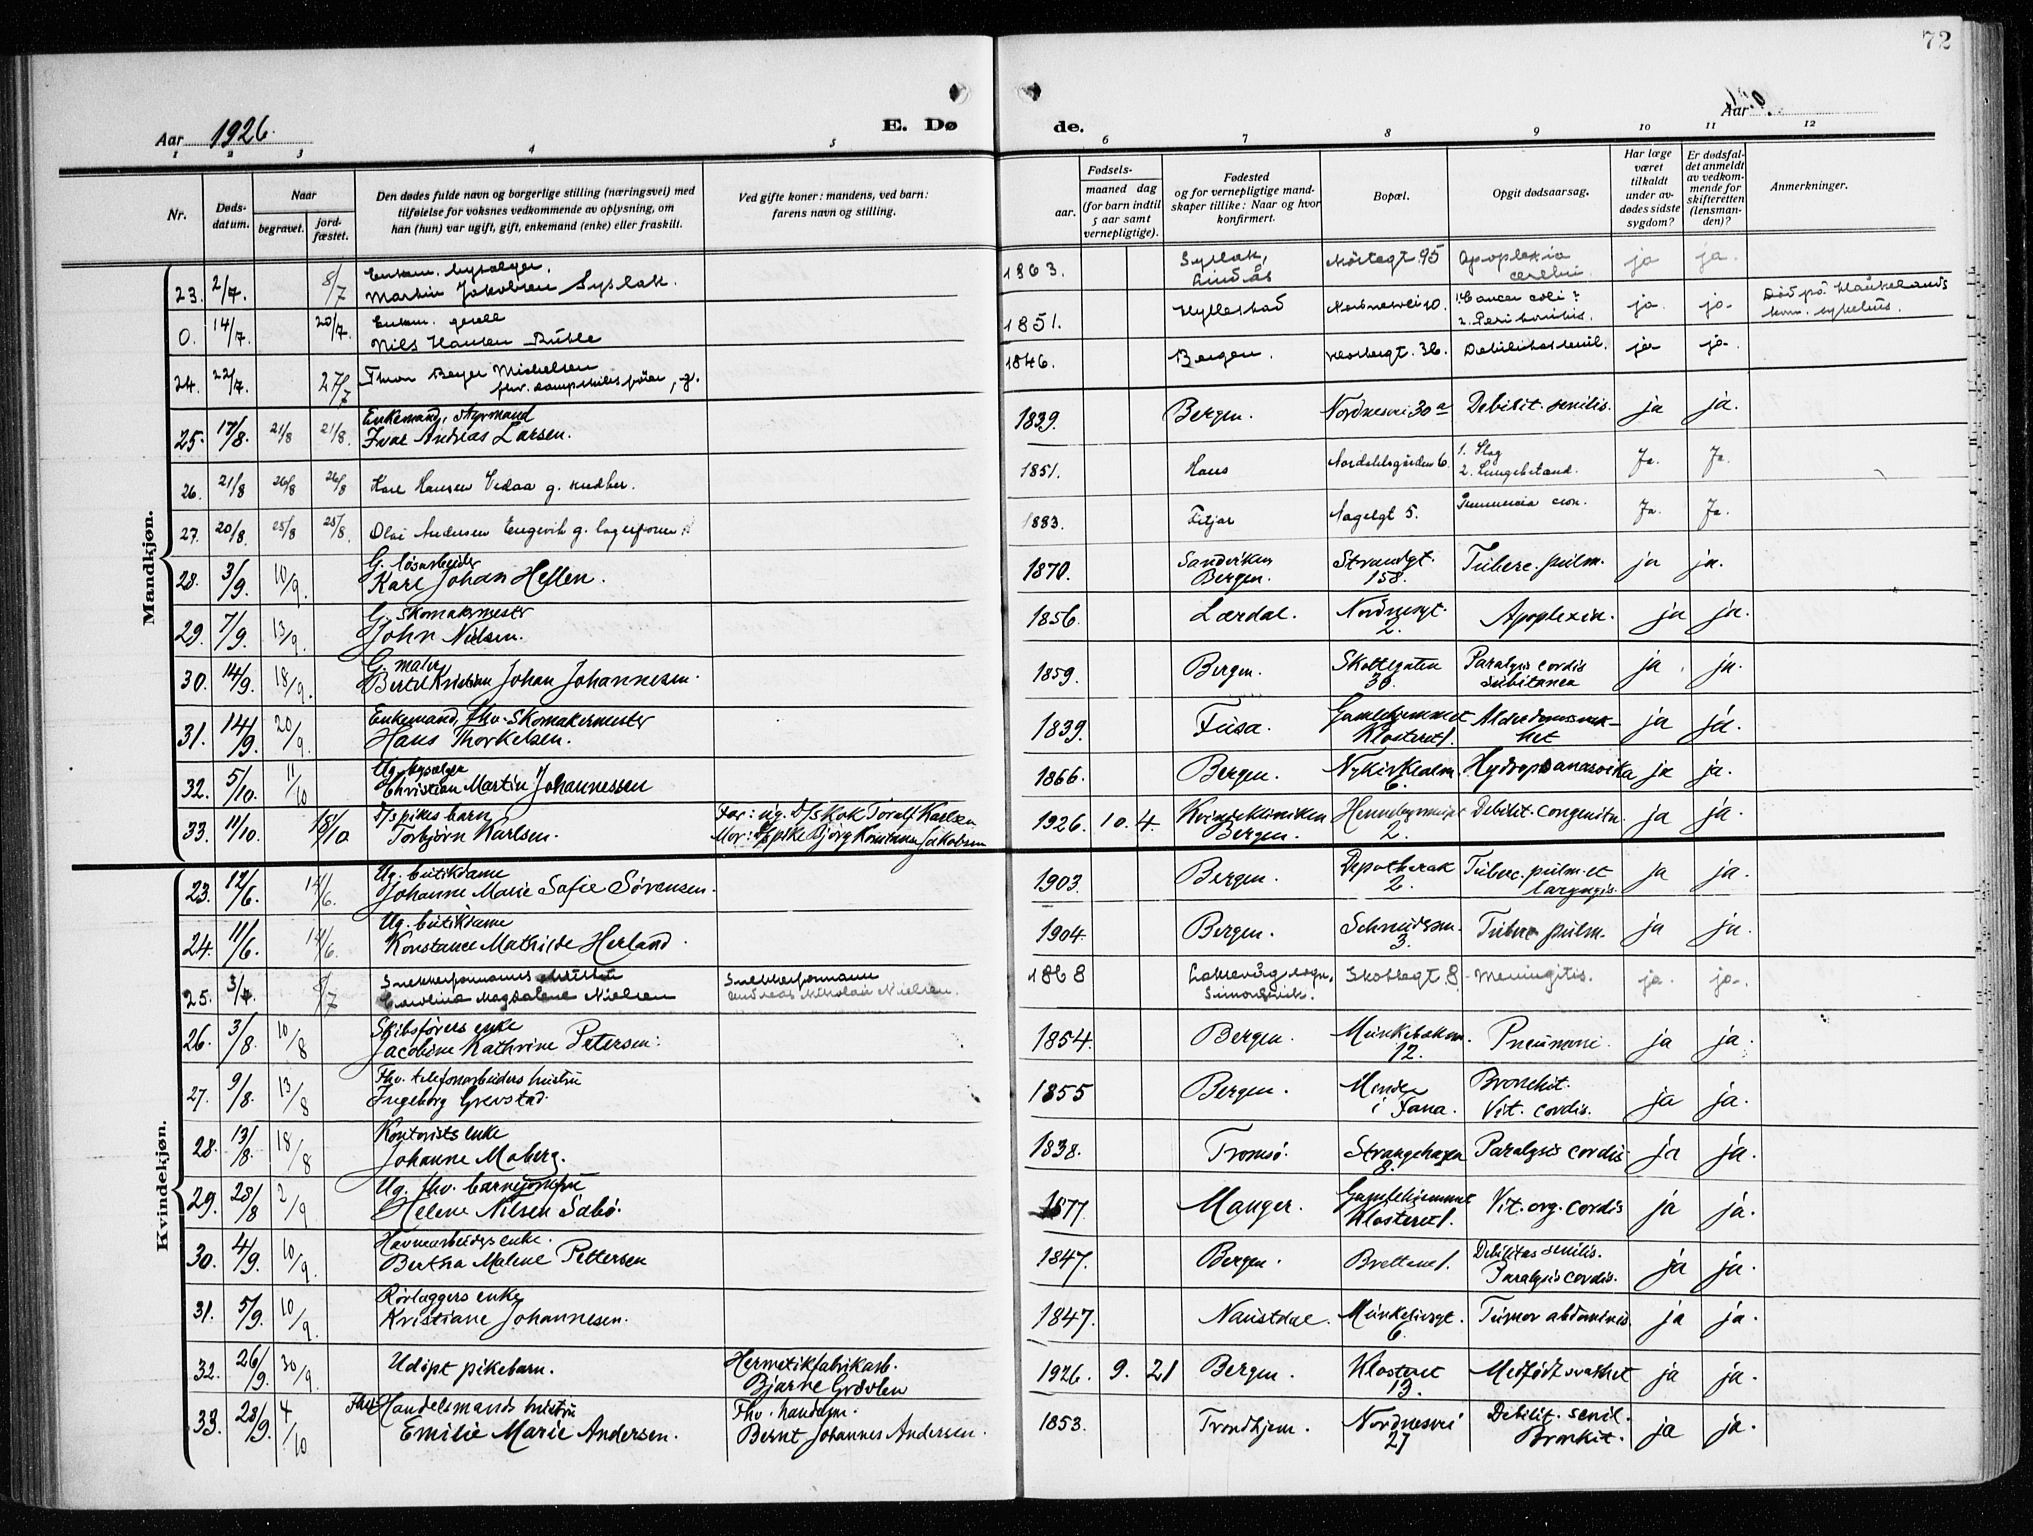 72
Aar 1926.
E. Dø
de.
Aar
1 2 3 4 5 6 7 8 9 10 11 12
Nr.
Døds-
datum.
Naar
begravet.
jord-
fæstet.
Den dødes fulde navn og borgerlige stilling (næringsvei) med
tilføielse for voksnes vedkommende av oplysning, om
han (hun) var ugift, gift, enkemand (enke) eller fraskilt.
Ved gifte koner: mandens, ved barn:
farens navn og stilling.
Fødsels-
aar.
maaned dag
(for barn indtil
5 aar samt
vernepligtige).
Fødested
og for vernepligtige mand-
skaper tillike: Naar og hvor
konfirmert.
Bopæl.
Opgit dødsaarsag.
Har læge
været
tilkaldt
under av-
dødes sidste
sygdom?
Er dødsfal-
det anmeldt
av vedkom-
mende for
skifteretten
(lensman-
den)?
Anmerkninger.
Mandkjøn.
23. 2/7. 8/7 Enkem. bysælger. 1863. Syslak, Apoplexia ja ja.
Martin Jakobsen Syslak. Lindås 95 cerebri.
0. 14/7. 20/7. Enkem. 1851. Hyllestad Nordnesvei 10. 1. Cancer coli? ja. ja. Død på Haukelands
Nils Hansen 2. Peritonitis. kom. sykehus.
24. 22/7. 27/7 Thron Beyer Michelsen 1846. Bergen. Klostergt. 36. Debilitas senil. ja ja.
fhv. dampskibsfører, g.
25. 17/8. 21/8 21/8. Enkemand, styrmand 1839. Bergen. Nordnesvei 30 a Debilit. senilis. ja ja.
Ivar Andreas Larsen.
26. 21/8 26/8 26/8 Karl Hansen Vedaa g. 1851. Haus 6. 1. Slag Ja. Ja.
2. Lungebetænd.
27. 20/8. 25/8 25/8. Olai Andersen Engevik g. 1883. Fitjar Nagelgt 5. Ja. Ja.
28. 3/9. 10/9. G. løsarbeider 1870. Sandviken Strandgt. Tuberc. pulm. ja ja.
Karl Johan Hellen. Bergen. 158.
29. 7/9. 13/9. G. Skomakermester 1856. Lærdal. Nordnesgt. Apoplexia. ja ja.
John Nielsen. 2.
30. 14/9. 18/9. G. maler 1859. Bergen. Skottegaten Paralysis cordis ja ja.
Bertel Kristian Johan Johannesen. 30. subitanea
31. 14/9. 20/9. Enkemand, fhv. Skomakermester 1839. Fusa. Gamlehjemmet Alderdomssvak- ja ja.
Hans Thorkelsen. Klosteret 1. het
32. 5/10. 11/10 Ug. bysælger 1866. Bergen. Nykirkealm. Hydrops anasarka ja ja.
Christian Martin Johannessen 6.
33. 11/10. 15/10 D/s pikes barn Far: ug. D/s Kok Toralf Karlsen 1926. 10. 4. Kvindeklinikken Debilit. congenita. ja ja.
Torbjørn Karlsen. Mor: Bjørg Konstanse Jakobsen Bergen. 2.
Kvindekjøn.
23. 12/6. 14/6. Ug. butikdame 1903. Bergen. Depotberak Tuberc. pulm. et ja ja.
Johanne Marie Safie Sørensen. 2. laryngis.
24. 11/6. 14/6. Ug. butikdame 1904. Bergen. Tuberc. pulm. ja ja.
Konstance Mathilde Herland. 3.
25. 3/7. 8/7 Snekkerformanns Snekkerformann 1868 Laksevåg sogn, Skottegt 8. Meningitis. ja. ja.
Carolina Magdalene Nielsen Andreas Nikolai Nielsen. Simonsvik.
26. 3/8. 10/8 Skibsførers enke 1854. Bergen. Munkebakken. Pneumoni. ja ja.
Jacobine Kathrine Petersen. 12.
27. 9/8. 13/8 Fhv. telefonarbeiders hustru 1855 Bergen. Minde Bronchit. ja ja.
Ingeborg Grevstad. i Fana. Vit. cordis.
28. 13/8. 18/8 Kontorists enke 1838. Tromsø. Strangehagen Paralysis cordis ja ja.
Johanne Moberg. 8.
29. 28/8 2/9 Ug. fhv. barnejomfru 1877. Manger. Gamlehjemmet Vit. org. cordis ja ja.
Helene Nilsen Sabø. Klosteret 1.
30. 4/9. 10/9. Havnearbeiders enke. 1847. Bergen. 1. Debilitas senilis. ja ja.
Bertha Malene Pettersen Paralysis cordis.
31. 5/9. 10/9. Rørlæggers enke 1847. Naustdal. Munkelivsgt. Tumor abdominis ja ja.
Kristiane Johannesen. 6.
32. 26/9 30/9. Udøpt pikebarn. Hermetikfabrikarb. 1926. 9. 21 Bergen. Klosteret Medfødt svakhet ja ja.
Bjarne 13.
33. 28/9. 4/10 Fhv. Handelsmands hustru Fhv. handelsm. 1853. Trondhjem. Nordnesvei Debilit. senil. ja ja.
Emilie Marie Andersen. Bernt Johannes Andersen. 27 Bronkit.